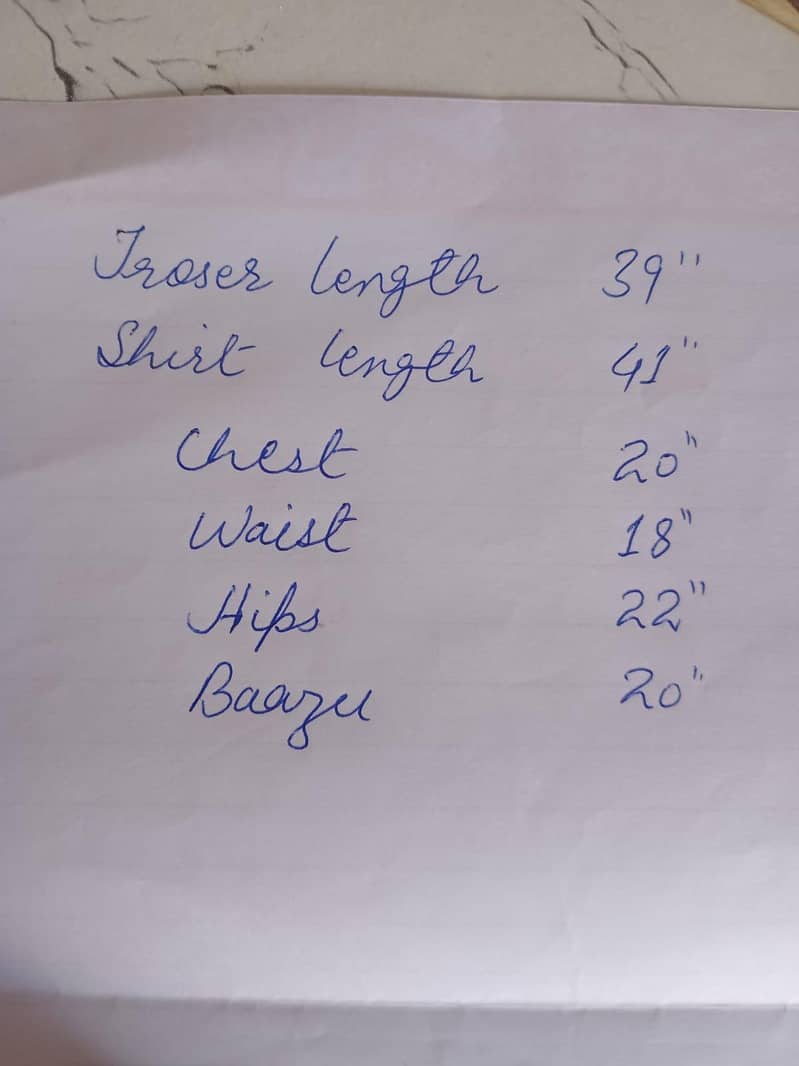 Troser length 39"
Shirt length 41"
Chest 20"
Waist 18"
Hips 22"
Baazu 20"